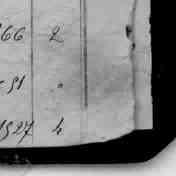 66 2
51 "
1927 4